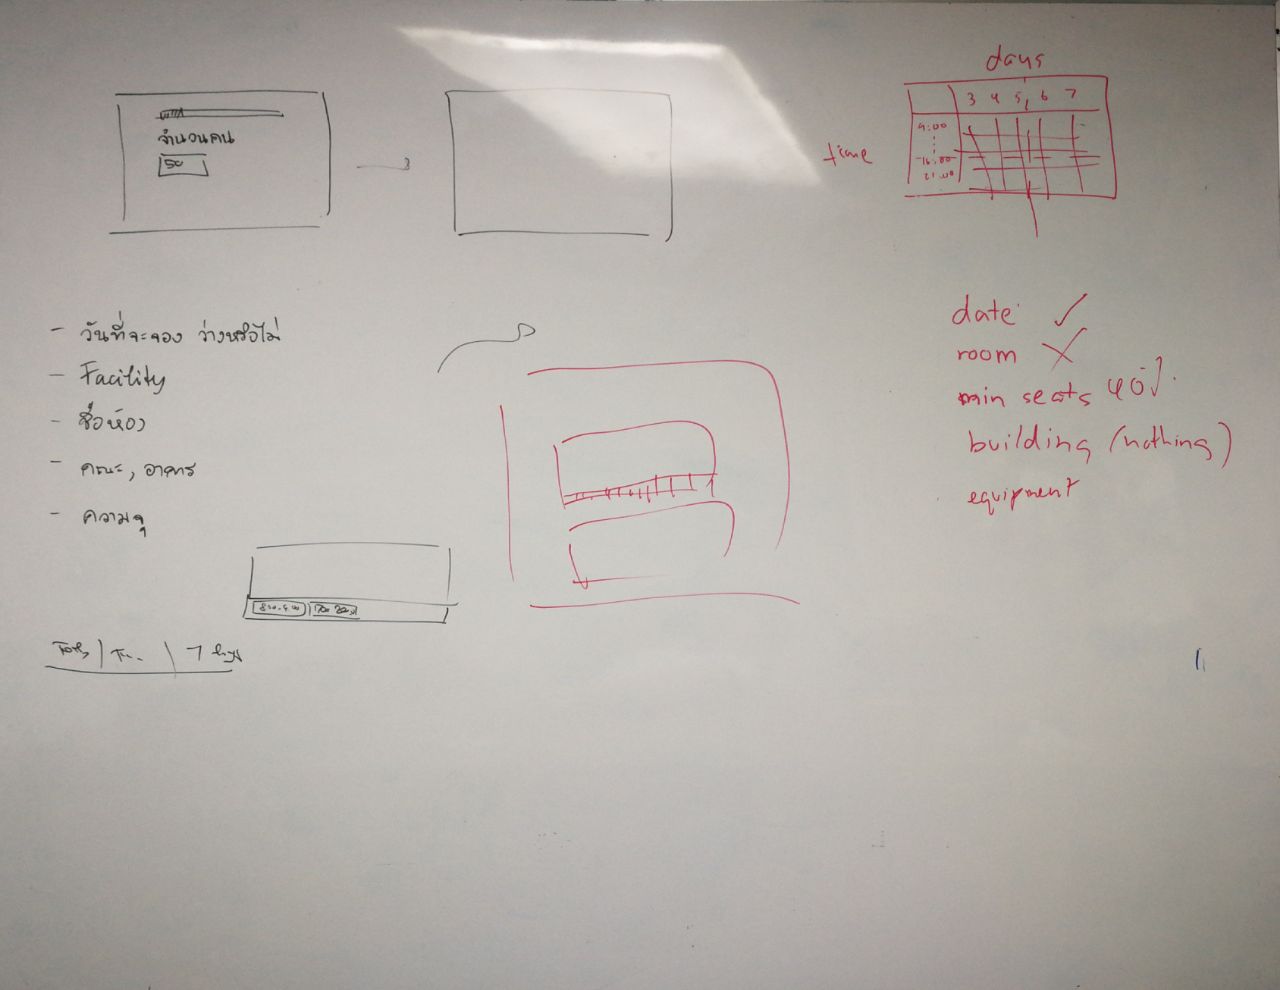 จำนวนคน
50
days
3 4 5 6 7
time
9:00
16:00
21:00
- วันที่จะจอง ว่างหรือไม่
- Facility
- ชื่อห้อง
- คณะ, อาคาร
- ความจุ
7
date ✓
room ✗
min seats 40%
building (nothing)
equipment